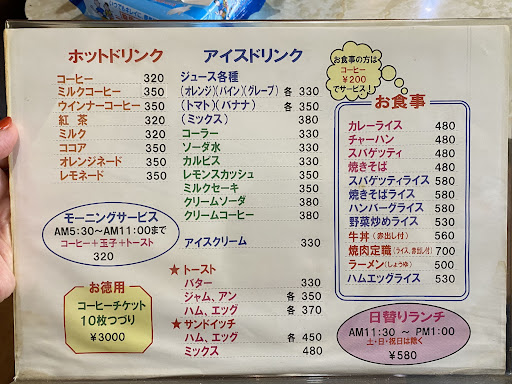 ホットドリンク
コーヒー 320
ミルクコーヒー 350
ウインナーコーヒー 350
紅 茶 320
ミルク 320
ココア 350
オレンジネード 350
レモネード 350
モーニングサービス
AM5:30～AM11:00まで
コーヒー＋玉子＋トースト
320
お徳用
コーヒーチケット
10枚つづり
￥3000
アイスドリンク
ジュース各種
(オレンジ)(パイン)(グレープ) 各 330
(トマト)(バナナ) 各 350
(ミックス) 380
コーラー 330
ソーダ水 330
カルピス 330
レモンスカッシュ 350
ミルクセーキ 350
クリームソーダ 380
クリームコーヒー 380
アイスクリーム 330
★トースト
バター 330
ジャム、アン 各 350
ハム、エッグ 各 370
★サンドイッチ
ハム、エッグ 各 450
ミックス 480
お食事の方は
コーヒー
￥200
でサービス!
お食事
カレーライス 480
チャーハン 480
スパゲッティ 480
焼きそば 480
スパゲッティライス 530
焼きそばライス 530
ハンバーグライス 530
野菜炒めライス 530
牛丼(赤出し付) 560
焼肉定職(ライス、赤出し付) 700
ラーメン(しょうゆ) 500
ハムエッグライス 530
日替りランチ
AM11:30 ～ PM1:00
土・日・祝日は除く
￥580